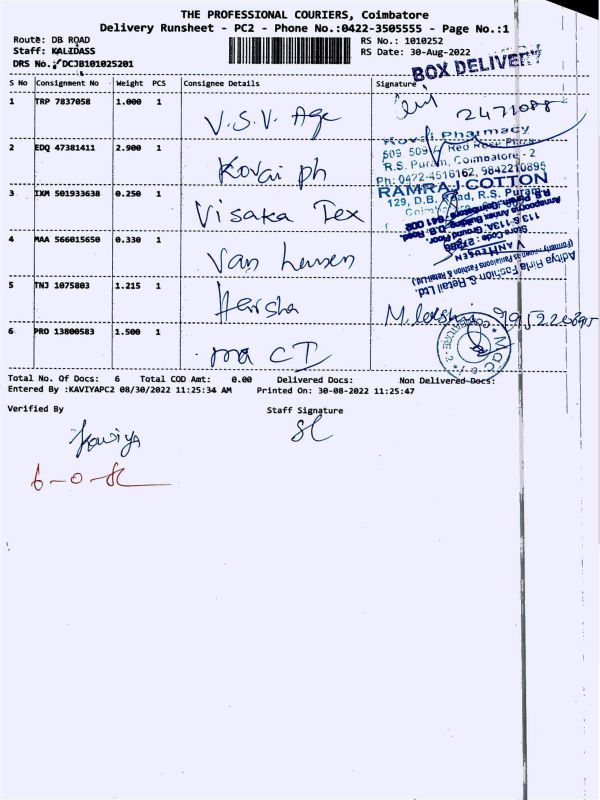 THE PROFESSIONAL COURIERS, Coimbatore
Delivery Runsheet - PC2 - Phone No.:0422-3505555 - Page No.:1
Route: DB ROAD
RS No.: 1010252
Staff: KALIDASS
RS Date: 30-Aug-2022
DRS No.: DCJB101025201
BOX DELIVERY
S No Consignment No Weight PCS Consignee Details Signature
1 TRP 7837058 1.000 1 V.S.V. Age 2471088
2 EDQ 47381411 2.900 1 Kovai ph
Kovai Pharmacy
509, 509/ Red Rose Plaza
R.S. Puram, Coimbatore - 2
Ph: 0422-4516162, 9842210895
3 IXM 501933638 0.250 1 Visaka Tex
RAMRAJ COTTON
129, D.B. Road, R.S. Puram
4 MAA 566015650 0.330 1 Van heusen
Aditya Birla Fashion & Retail Ltd.
(Formerly known as Pantaloons Fashion & Retail Ltd.)
VAN HEUSEN
Store Code: 27388
113, 6-113A, Ground Floor,
Annapoorna Annex Building, D.B. Road,
R.S. Puram, Coimbatore - 641 002
5 TNJ 1075803 1.215 1 Harsha
6 PRO 13800583 1.500 1 ma CT
Total No. Of Docs: 6 Total COD Amt: 0.00 Delivered Docs: Non Delivered Docs:
Entered By :KAVIYAPC2 08/30/2022 11:25:34 AM Printed On: 30-08-2022 11:25:47
Verified By Staff Signature
Kaviya
6-0-